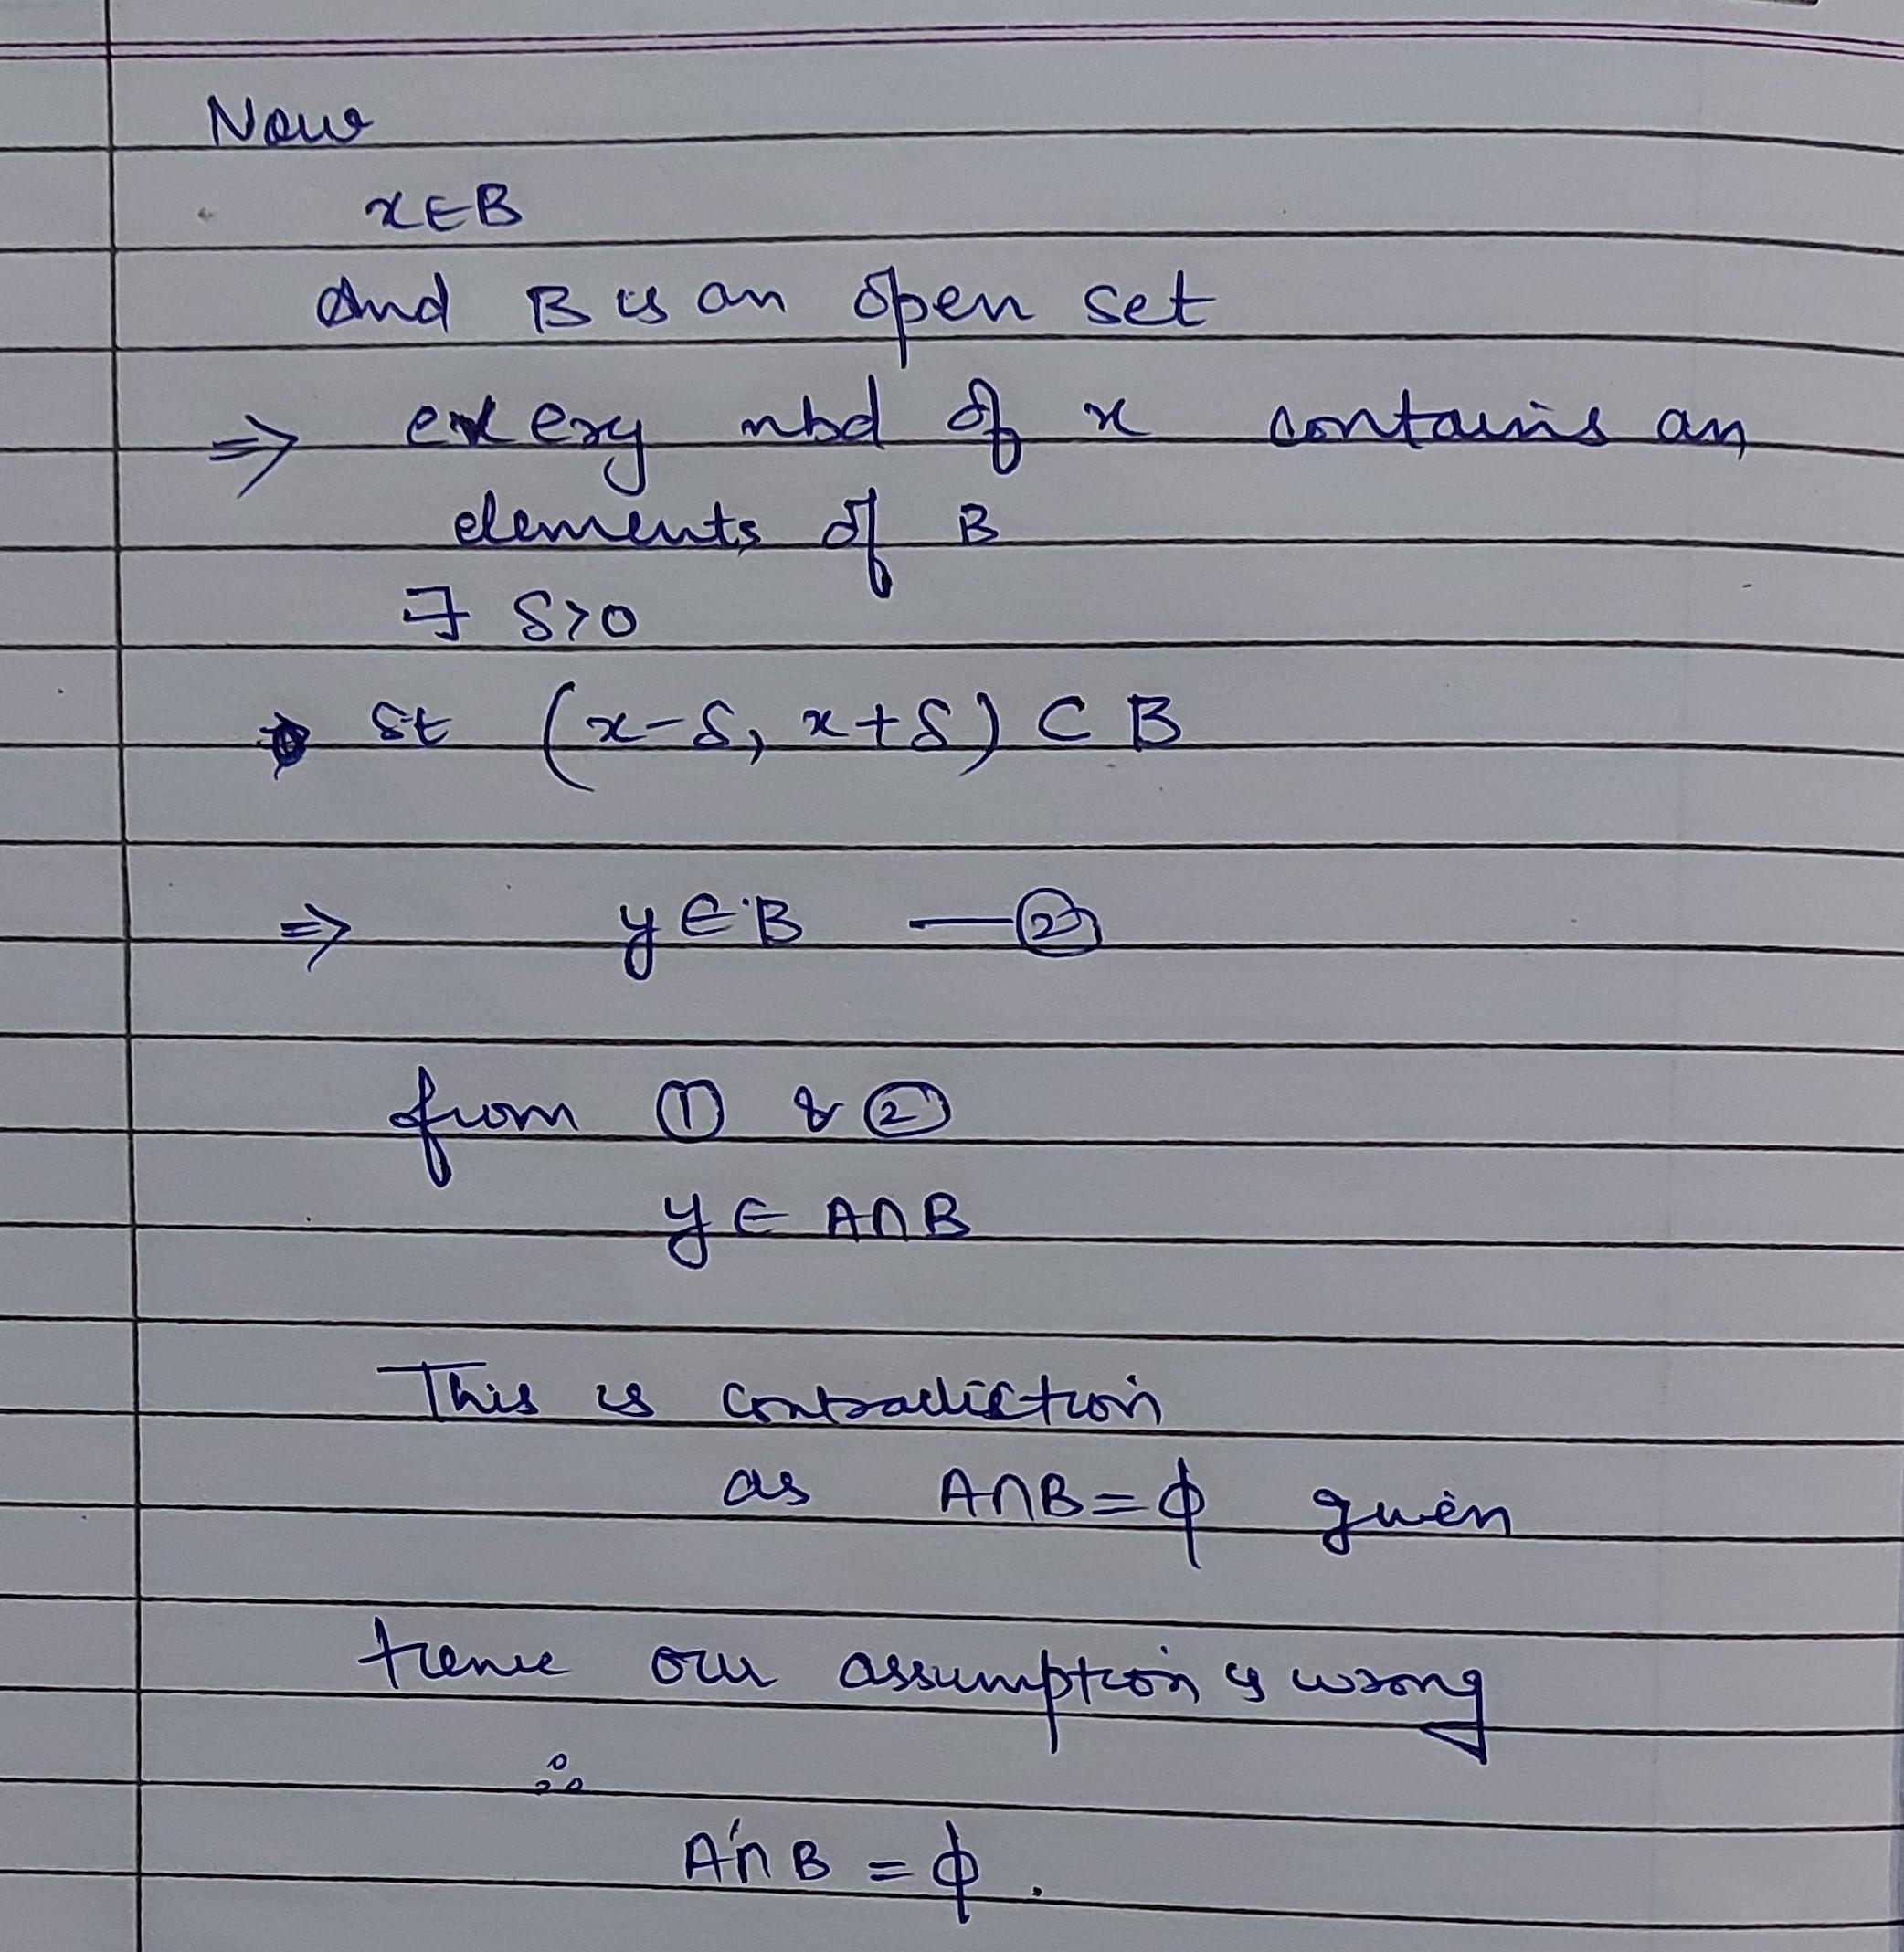 Now
x∈B
And B is an open set
⇒ every nbd of x contains an
elements of B
∃ δ>0
st (x-δ, x+δ) ⊂ B
⇒ y∈B —②
from ① & ②
y ∈ A∩B
This is contradiction
as A∩B=ϕ given
Hence our assumption is wrong
∴
A'∩B = ϕ.